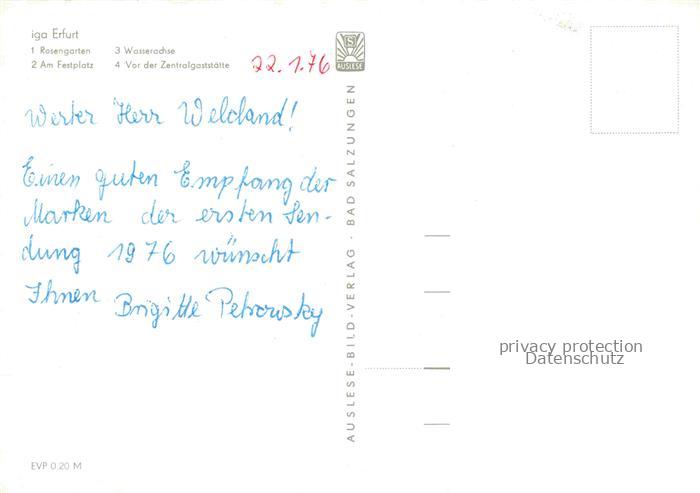 iga Erfurt
1 Rosengarten 3 Wasserachse
2 Am Festplatz 4 Vor der Zentralgaststätte
22.1.76
AUSLESE
Werter Herr Weldand!
Einen guten Empfang der
Marken der ersten Sen-
dung 1976 wünscht
Ihnen Brigitte Petrowsky
AUSLESE-BILD-VERLAG · BAD SALZUNGEN
privacy protection
Datenschutz
EVP 0,20 M